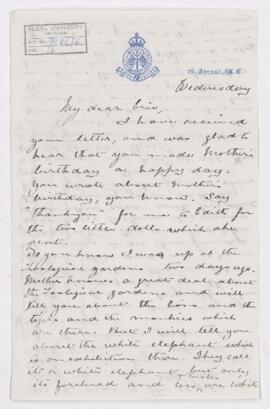 McGILL UNIVERSITY
ARCHIVES
ACC. NO.
REF.
Wednesday
My dear Eric,
I have received
your letter, and was glad to
hear that you made Mother's
birthday a happy day.
You wrote about Mother's
birthday, you know. Say
"Thankyou" for me to Edith for
the two letter dolls which she
sent.
Do you know I was up at the
Zoological gardens two days ago.
Mother knows a great deal about
the Zoological Gardens and will
tell you about the lions and the
tigers and the monkies which
are there. But I will tell you
about the white elephant which
is on exhibition there. They call
it a white elephant but only
its forehead and are white